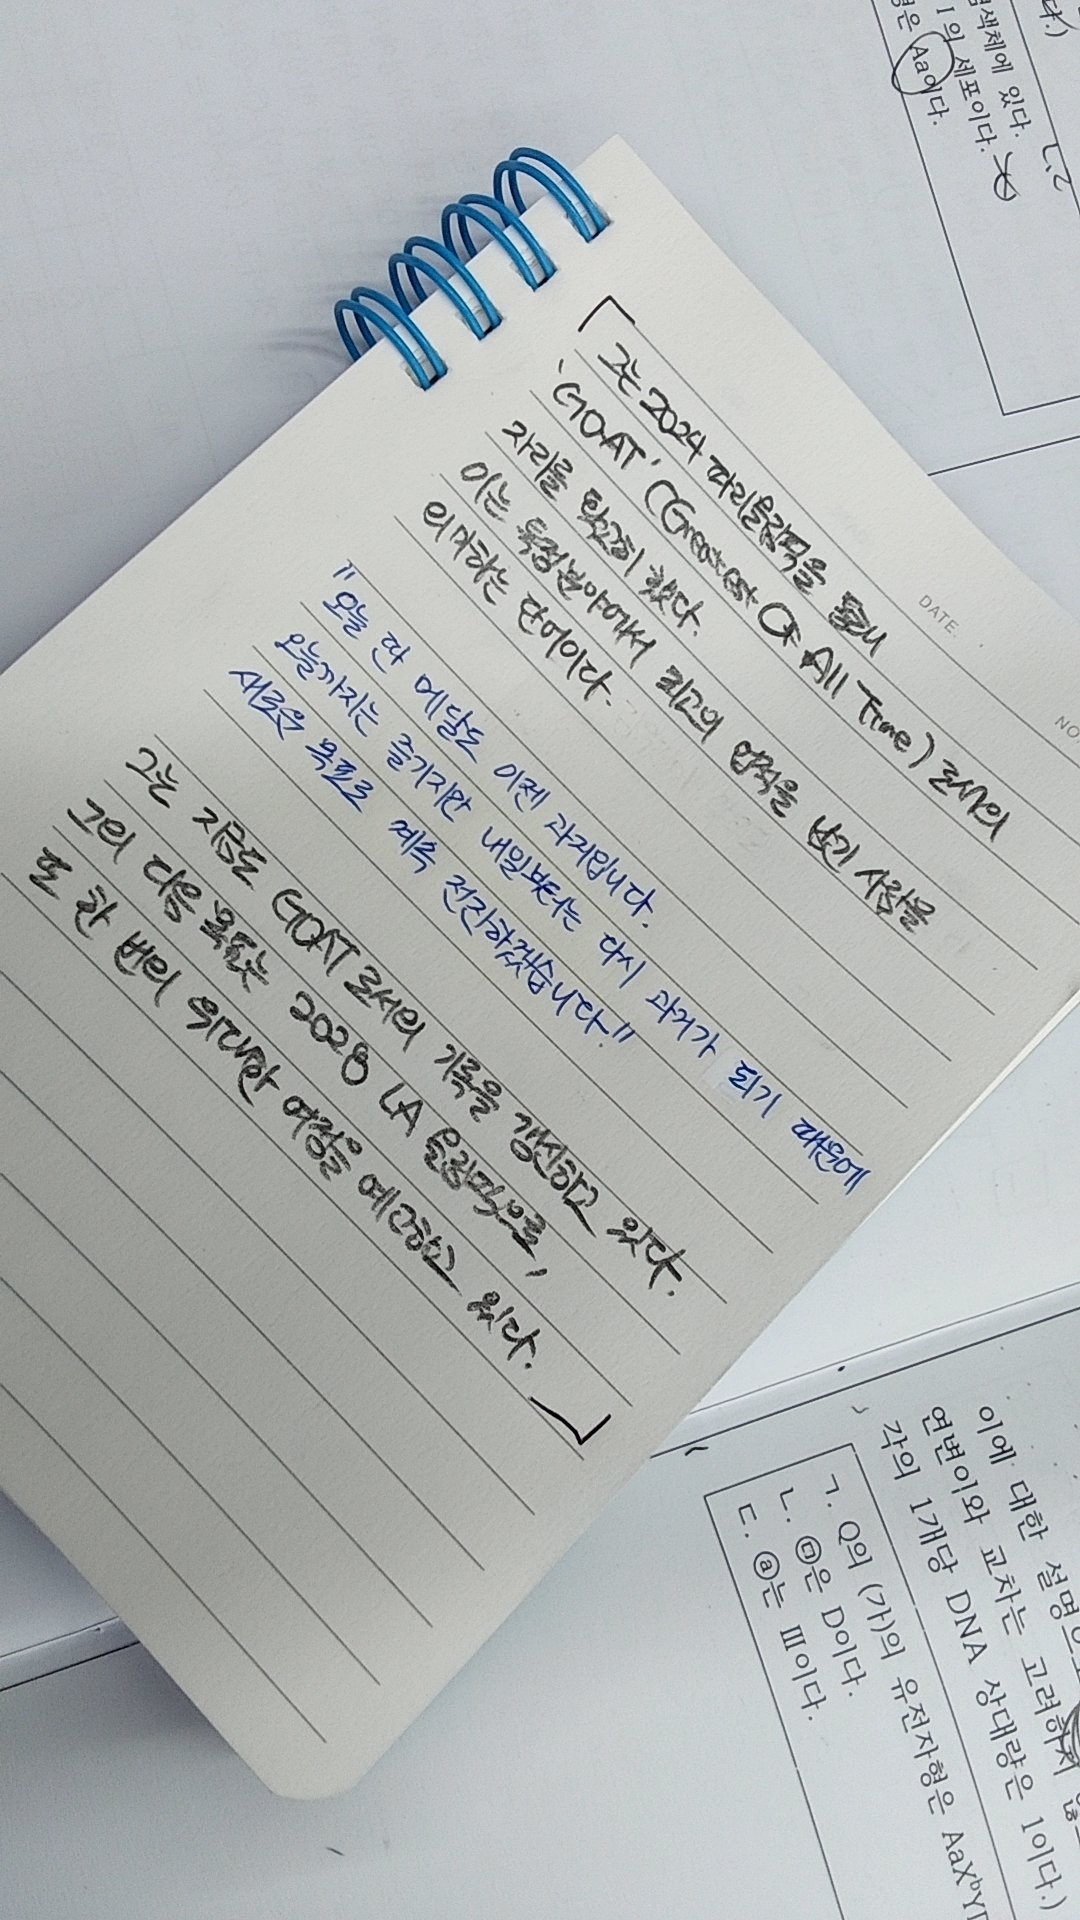 염색체에 있다.
Ⅰ의 세포이다.
형은 Aa이다.
DATE.
NO.
「그는 2024 파리올림픽을 통해
'GOAT' (Greatest Of All Time) 로서의
자리를 확고히 했다.
이는 특정분야에서 최고의 업적을 남긴 사람을
의미하는 단어이다.
"오늘 딴 메달도 이젠 과거입니다.
오늘까지는 즐기지만 내일부터는 다시 과거가 되기 때문에
새로운 목표로 계속 전진하겠습니다."
그는 지금도 GOAT로서의 기록을 갱신하고 있다.
그의 다음 목표는 2028 LA 올림픽으로,
또 한 번의 위대한 여정을 예고하고 있다.」
이에 대한 설명으로
연변이와 교차는 고려하지
각의 1개당 DNA 상대량은 1이다.)
ㄱ. Q의 (가)의 유전자형은 AaXᵇY
ㄴ. ㉤은 D이다.
ㄷ. ⓐ는 Ⅲ이다.